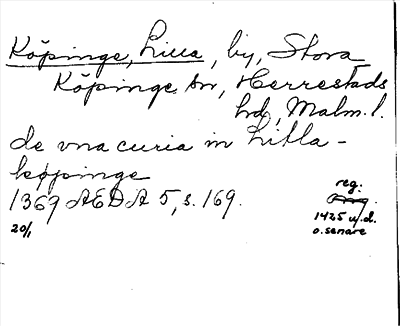 Köpinge, Lilla, by, Stora
Köpinge sn, Herrestads
hd, Malm. l.
de vna curia in Litla-
køpinge
1369 AEDA 5, s. 169.
reg:
1425 u.d.
o. senare
20/1